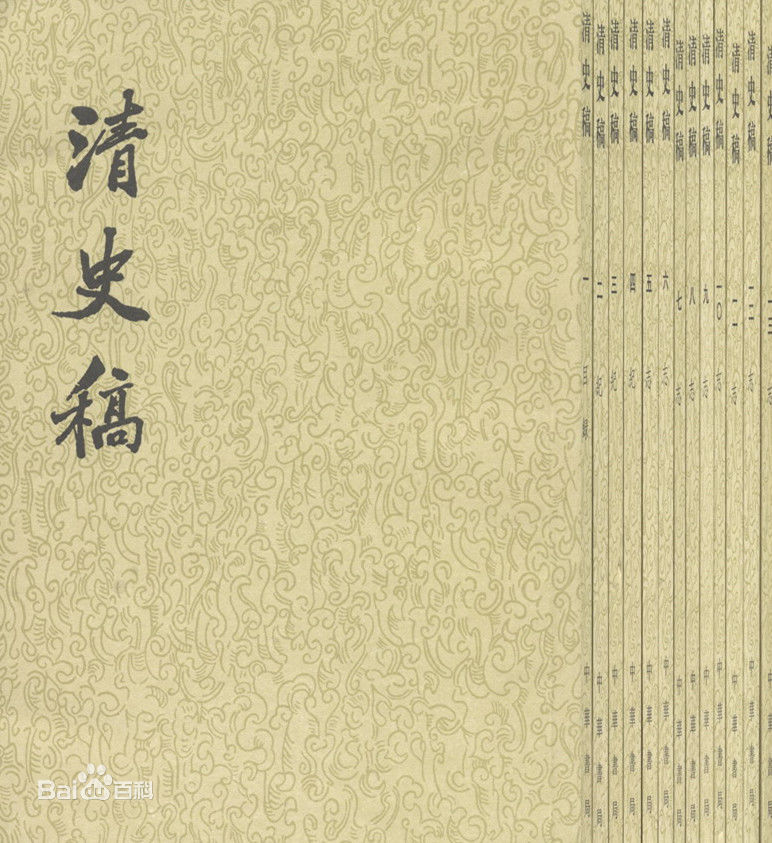 清史稿
清史稿 一 中華書局
清史稿 二 中華書局
清史稿 三 中華書局
清史稿 四 中華書局
清史稿 五 中華書局
清史稿 六 中華書局
清史稿 七 中華書局
清史稿 八 中華書局
清史稿 九 中華書局
清史稿 一〇 中華書局
清史稿 一一 中華書局
清史稿 一二 中華書局
清史稿 一三 中華書局
Bai百科